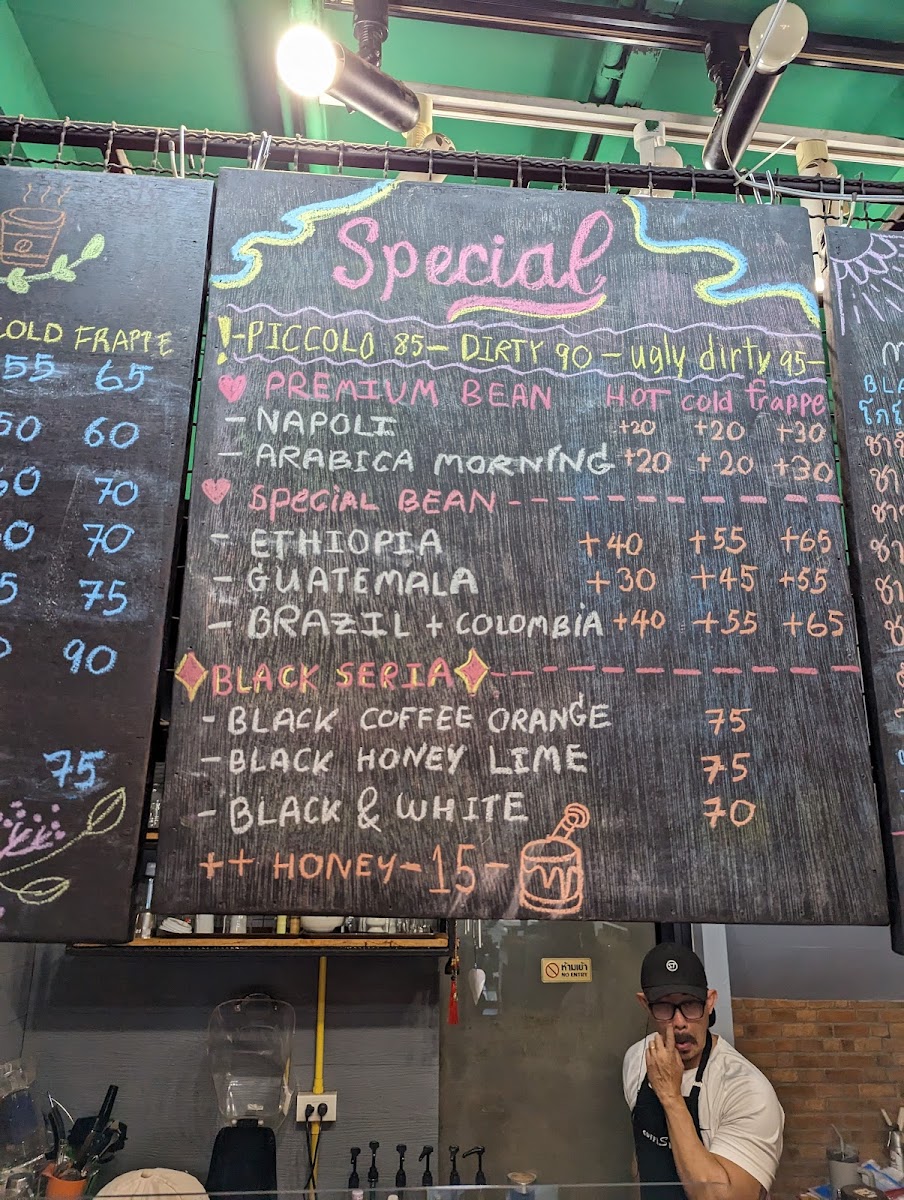 COLD FRAPPE
55 65
50 60
60 70
70
75
90
75
Special
!-PICCOLO 85- DIRTY 90 - ugly dirty 95-
PREMIUM BEAN HOT cold frappe
- NAPOLI +20 +20 +30
- ARABICA MORNING +20 +20 +30
SPECIAL BEAN
- ETHIOPIA +40 +55 +65
- GUATEMALA +30 +45 +55
- BRAZIL + COLOMBIA +40 +55 +65
BLACK SERIA
- BLACK COFFEE ORANGE 75
- BLACK HONEY LIME 75
- BLACK & WHITE 70
++ HONEY-15-
ห้ามเข้า
NO ENTRY